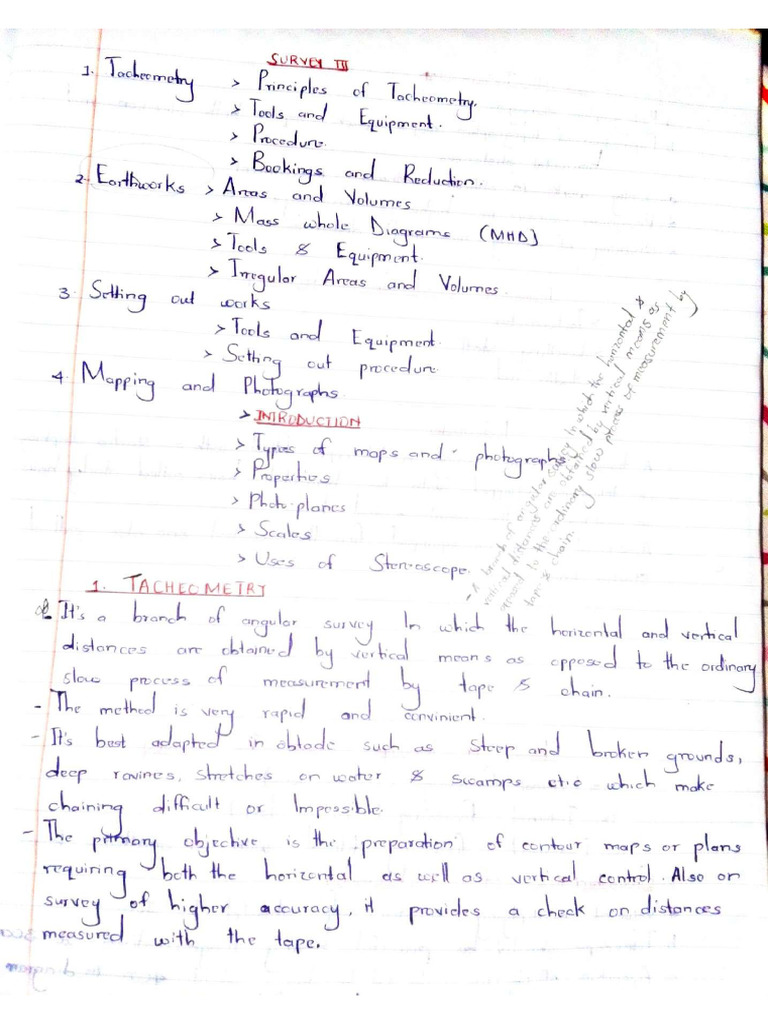 SURVEY III
1. Tacheometry > Principles of Tacheometry.
> Tools and Equipment.
> Procedure.
> Bookings and Reduction.
2. Earthworks > Areas and Volumes
> Mass whole Diagrams (MHD)
> Tools & Equipment.
> Irregular Areas and Volumes.
3. Setting out works
> Tools and Equipment.
> Setting out procedure
4. Mapping and Photographs
> INTRODUCTION
> Types of maps and photographs
> Properties
> Photo planes
> Scales
> Uses of Stereoscope.
- A branch of angular survey in which the horizontal &
vertical distances are obtained by vertical means as
opposed to the ordinary slow process of measurement by
tape & chain.
1. TACHEOMETRY
It's a branch of angular survey In which the horizontal and vertical
distances are obtained by vertical means as opposed to the ordinary
slow process of measurement by tape & chain.
- The method is very rapid and convinient.
- It's best adapted in such as steep and broken grounds,
deep ravines, stretches on water & swamps etc which make
chaining difficult or Impossible.
- The primary objective is the preparation of contour maps or plans
requiring both the horizontal as well as vertical control. Also on
survey of higher accuracy, it provides a check on distances
measured with the tape.